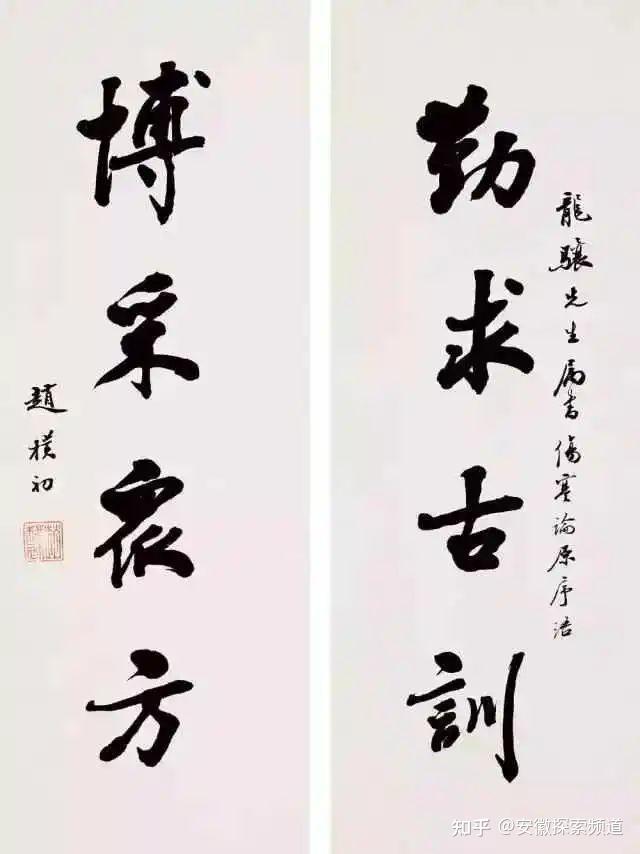 龍驤先生属書傷寒論原序語
勤求古訓
博采衆方
趙樸初
知乎 @安徽探索频道